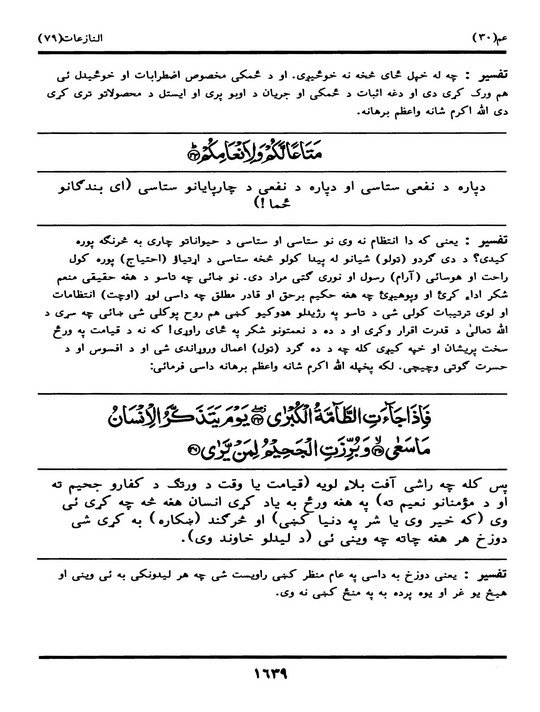 عم(٣٠) النازعات(٧٩)
تفسیر : چه له خپل ځای څخه نه خوځیږي. او د ځمکي مخصوص اضطرابات او خوځیدل ئې
هم ورک کړی دی او دغه اثبات د ځمکي او جریان د اوبو پری او ایستل د محصولاتو تری کړی
دی الله اکرم شانه واعظم برهانه.
مَتَاعًا لَّكُمْ وَلِأَنْعَامِكُمْ ﴿٣٣﴾
دپاره د نفعی ستاسی او دپاره د نفعی د چارپایانو ستاسی (ای بندګانو
ځما !)
تفسیر : یعنی که دا انتظام نه وی نو ستاسی او ستاسی د حیواناتو چاری به څرنګه پوره
کیدی؟ د دی ګردو (تولو) شیانو له پیدا کولو څخه ستاسی د اړتیاؤ (احتیاج) پوره کول
راحت او هوسائی (آرام) رسول او نوری ګتی مراد دی. نو ښائی چه تاسو د هغه حقیقی منعم
شکر اداء کړئ او وپوهیږئ چه هغه حکیم برحق او قادر مطلق چه داسی لوړ (اوچت) انتظامات
او لوی ترتیبات کولی شی د تاسو په رژیدلو هډوکیو کښی هم روح پوکلی شی ښائی چه سړی د
الله تعالیٰ د قدرت اقرار وکړی او د ده د نعمتونو شکر په ځای راوړی! که نه د قیامت په ورځ
سخت پریشان او خپه کیږی کله چه د ده ګرد (تول) اعمال وروړاندی شی او د افسوس او د
حسرت ګوتی وچیچی. لکه پخپله الله اکرم شانه واعظم برهانه داسی فرمائی:
فَإِذَا جَاءَتِ الطَّامَّةُ الْكُبْرَىٰ ﴿٣٤﴾ يَوْمَ يَتَذَكَّرُ الْإِنسَانُ
مَا سَعَىٰ ﴿٣٥﴾ وَبُرِّزَتِ الْجَحِيمُ لِمَن يَرَىٰ ﴿٣٦﴾
پس کله چه راشی آفت بلاء لویه (قیامت یا وقت د ورتګ د کفارو جحیم ته
او د مؤمنانو نعیم ته) په هغه ورځ به یاد کړی انسان هغه څه چه کړی ئی
وی (که خیر وی یا شر په دنیا کښی) او څرګند (ښکاره) به کړی شی
دوزخ هر هغه چاته چه وینی ئی (د لیدلو خاوند وی).
تفسیر : یعنی دوزخ به داسی په عام منظر کښی راویست شی چه هر لیدونکی به ئی وینی او
هیڅ یو غر او یوه پرده به په منځ کښی نه وی.
١٦٣٩